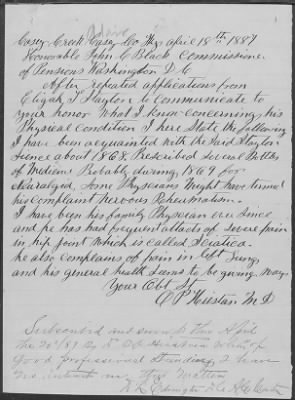 Casey Creek Casey Co Ky April 18th 1887
Honorable John C Black Commissione
of Pensions Washington D.C
After repeated applications from
Elijah T Slayton to Communicate to
your honor what I know concerning his
Physical condition I here State the following
I have been acquainted with the said Slayton
since about 1868. Prescribed several Bottles
of Medicine Probably during 1869 for
Neuralgia, Some Physicians Might have termed
his complaint nervous Rheumatism.
I have been his family Physician ever Since
and he has had frequent attacks of Severe pain
in hip Joint which is called Sciatica.
he also complains of pain in left Lung
and his general health Seems to be giving way.
Your Obt St
M D
Subscribed and sworn to this April
the 20 /87 by Dr
Good professional Standing, I have
no interest in this matter